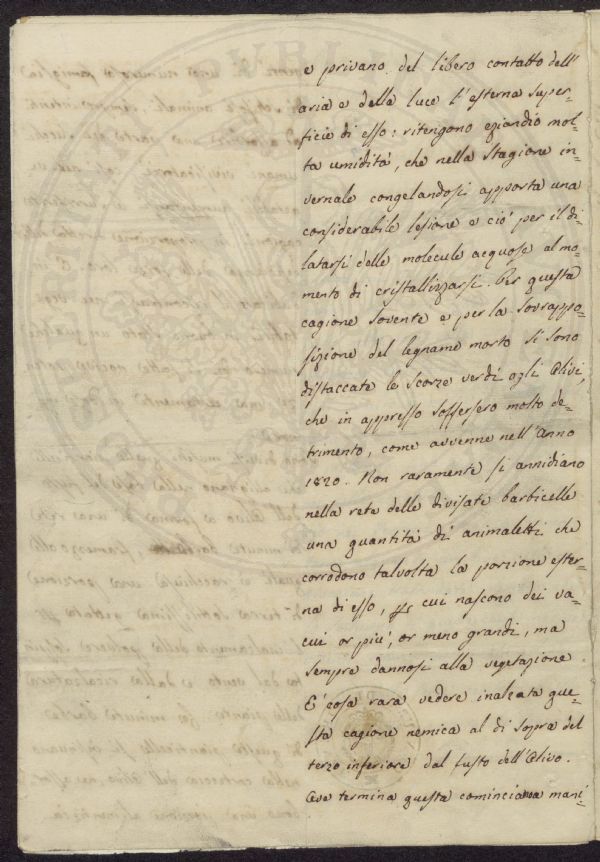 e privano del libero contatto dell'
aria e della luce l'esterna super-
ficie di esso: ritengono eziandio mol-
ta umidità, che nella Stagione in-
vernale congelandosi apporta una
considerabile lesione e ciò per il di-
latarsi delle molecule acquose al mo-
mento di cristallizzarsi. Per questa
cagione Sovente e per la Sovrappo-
sizione del legname morto Si sono
distaccate le Scorze verdi agli Olivi,
che in appresso Soffersero molto de-
trimento, come avvenne nell'Anno
1820. Non raramente Si annidiano
nella rete delle divisate barbicelle
una quantità di animaletti che
corrodono talvolta la porzione ester-
na di esso, per cui nascono dei va-
cui or più, or meno grandi, ma
Sempre dannosi alla vegetazione.
E' cosa rara vedere inalzata que-
sta cagione nemica al di Sopra del
terzo inferiore dal fusto dell'Olivo.
Ove termina questa comincia mani-